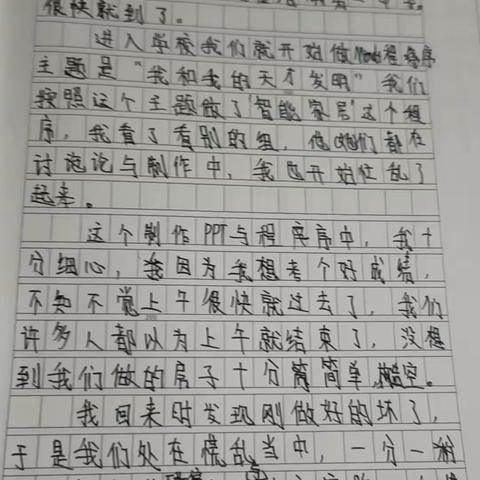 很快就到了。
进入学校我们就开始做程序
主题是“我和我的天才发明”我们
按照这个主题做了‘智能家居’这个程
序，我看了看别的组，他们都在
讨论与制作中，我也开始忙乱了
起来。
这个制作PPT与程序中，我十
分细心，我因为我想考个好成绩，
不知不觉上午很快就过去了，我们
许多人都以为上午就结束了，没想
到我们做的房子十分简单，
我回来时发现刚做好的坏了，
于是我们处在慌乱当中，一分一